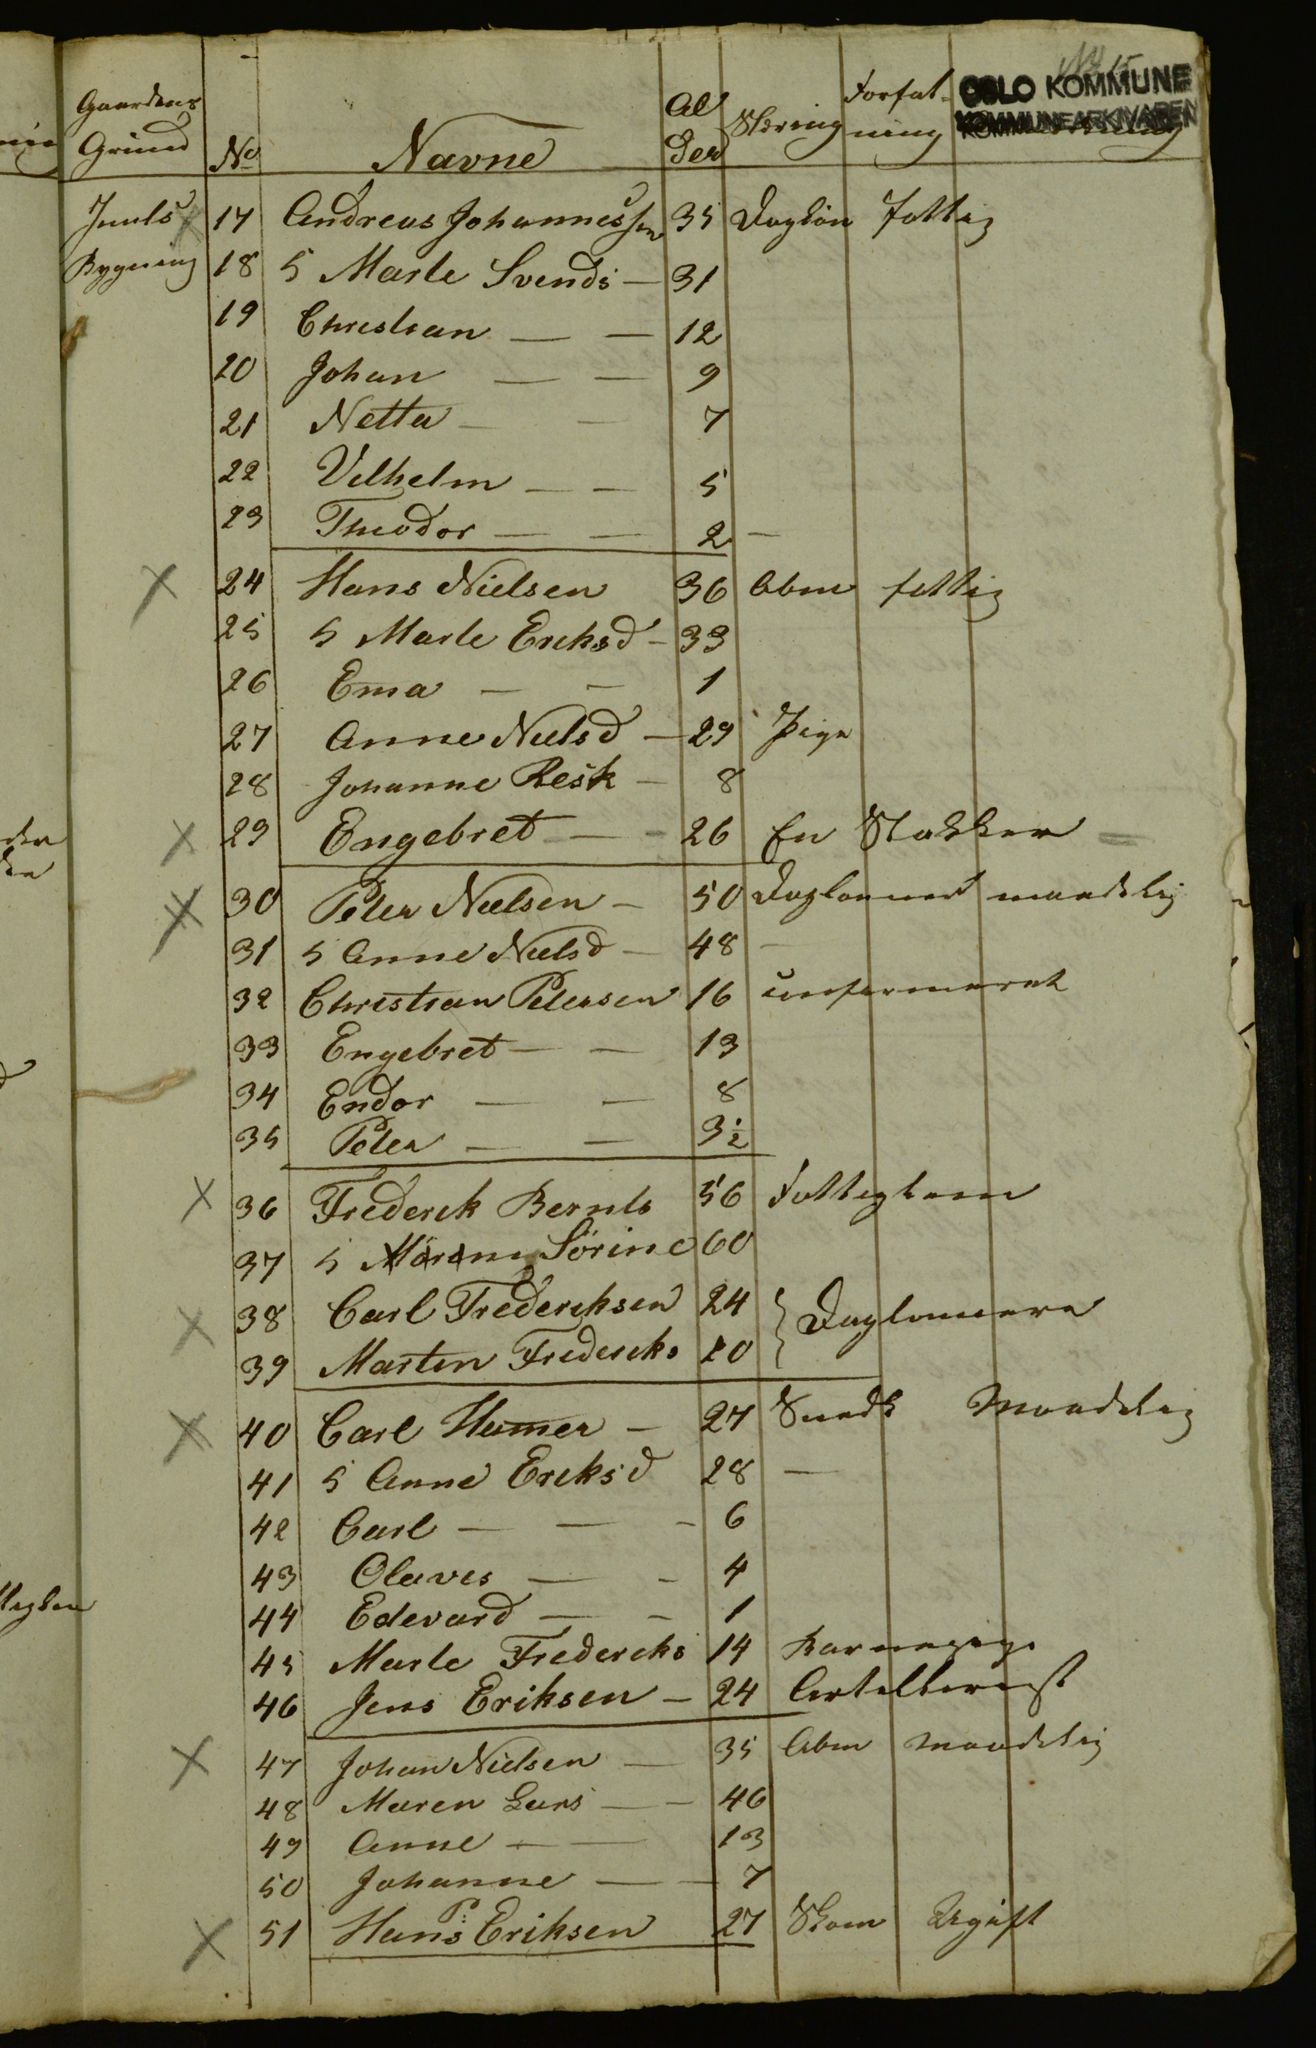 No 15
OSLO KOMMUNE
KOMMUNEARKIVAREN
Gaardens Grund No Navne Al der Næring Forfat- ning
Juuls 17 Andreas Johannessen 35 Dagløn fattig
Bygning 18 5 Marte Svends — 31
19 Christian — — 12
20 Johan — — 9
21 Netta — — 7
22 Vilhelm — — 5
23 Theodor — — 2 —
24 Hans Nielsen 36 Abm fattig
25 5 Marte Eriksd — 33
26 Ema — — 1
27 Anne Nielsd — 29 Pige
28 Johanne Resk — 8
29 Engebret — — 26 En Stakker
30 Peter Nielsen — 50 Dagl maadelig
31 5 Anne Nielsd — 48 —
32 Christian Petersen 16 confermeret
33 Engebret — — 13
34 Endor — — 8
35 Peter — — 3½
36 Frederik Bernts 56 Fattiglem
37 5 Sörine 60
38 Carl Frederiksen 24 } Daglönnere
39 Martin Fredericks 20
40 Carl Hamer — 27 Snedk Maadelig
41 5 Anne Eriksd 28 —
42 Carl — — — 6
43 Olaves — — 4
44 Edevard — — 1
45 Marte Fredericks 14 Barnepige
46 Jens Eriksen — 24 Artellerist
47 Johan Nielsen — 35 Abm maadelig
48 Maren Lars — — 46
49 Anne — — 13
50 Johanne — — 7
51 Hans P: Eriksen 27 Skom Ugift